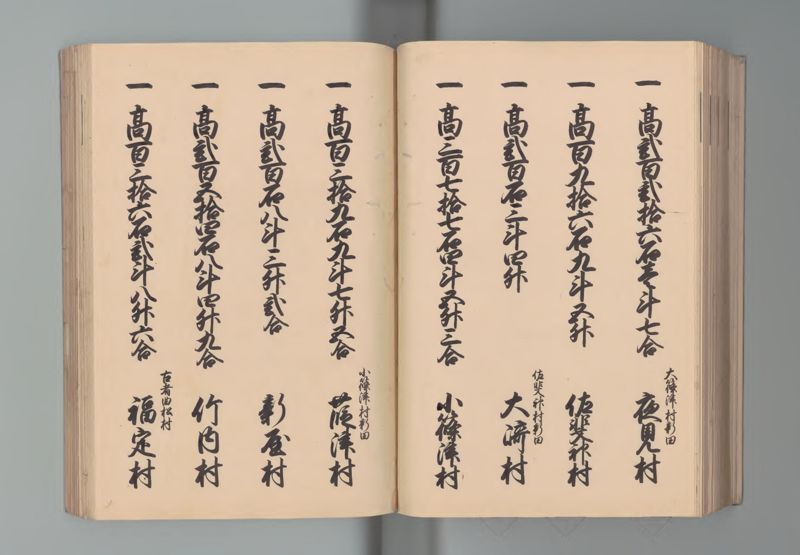 一 高弐百弐拾六石壱斗七合
大篠津村新田
夜見村
一 高百九拾六石九斗五升
佐斐神村
一 高弐百石三斗四升
佐斐神村新田
大崎村
一 高三百七拾七石四斗五升三合
小篠津村
一 高百三拾九石九斗七升五合
小篠津村新田
葭津村
一 高弐百石八斗三升弐合
新屋村
一 高弐百五拾四石八斗四升九合
竹内村
一 高百三拾六石弐斗八升六合
古者由松村
福定村